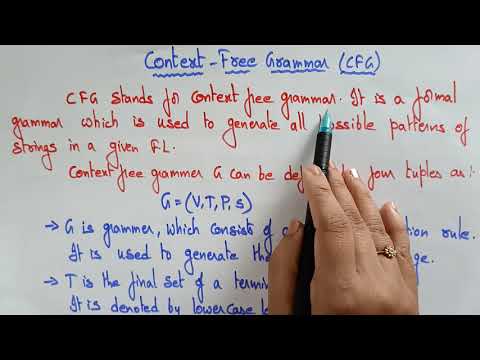 Context-Free Grammar (CFG)
CFG stands for Context free grammar. It is a formal
grammar which is used to generate all possible patterns of
strings in a given FL.
Context free grammer G can be def four tuples as:-
G = (V, T, P, S)
→ G is grammer, which consists of a tion rule.
It is used to generate the ge.
→ T is the final set of a termin
It is denoted by lowercase le